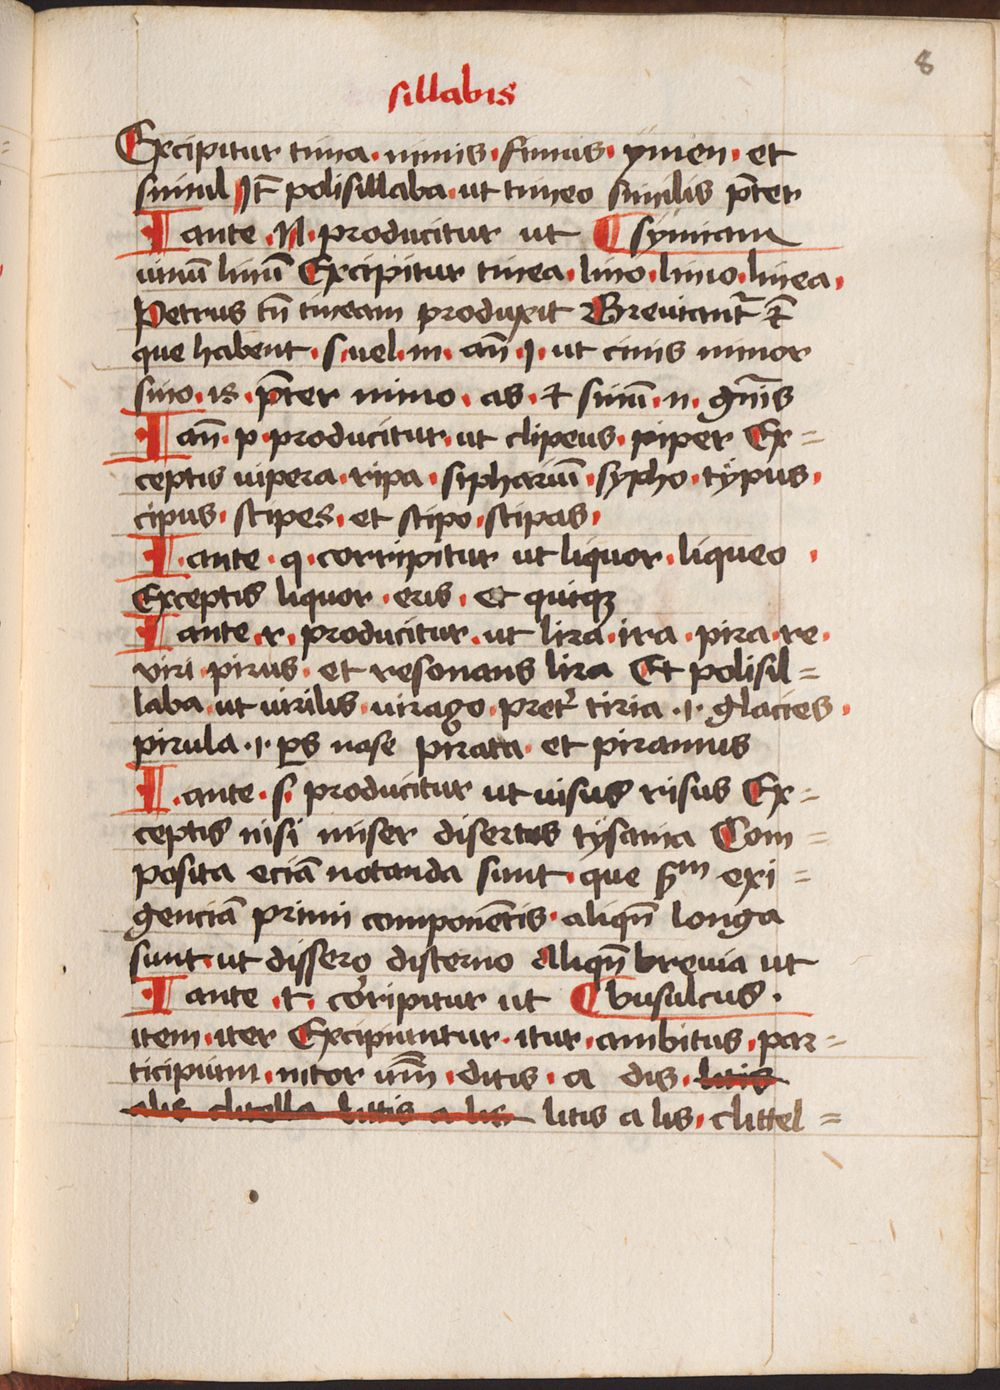 8
sillabis
Excipitur tima · nimis · fimus · ymen · et
simul Itē polisillaba · ut timeo similis p̄ter
I ante · N · producitur ut ¶ symiam
uinū linū Excipitur tinea · lino · linio · linea ·
Petrus tn̄ tineam produxit Breuiant᷑ ⁊
que habent · s · uel · m · an̄ · I · ut cinis minor
sino · is · p̄ter mino · as · ⁊ sinū · n · gn̄is
I an̄ · p · producitur · ut clipeus · piper Ex=
ceptis uipera · ripa · sipharium̄ · sypho · typus ·
cipus · stipes · et stipo · stipas ·
I · ante · q · corripitur ut liquor · liqueo ·
Exceptis liquor · eris · Et quicqꝫ
I ante · r · producitur · ut lira · ira · pira · re ·
viri · pirus · et resonans lira Et polisil=
laba · ut uirilis · uirago · pret᷑ tiria · ı · glacies ·
pirula · ı · ꝑs nase pirata · et piramus
I · ante · s · producitur ut uisus risus Ex=
ceptis nisi miser disertus tysana Com=
posita eciā notanda sunt · que sm̄ exi=
genciā primi componentis · aliqn̄ longa
sunt · ut dissero discerno Aliqn̄ breuia ut
I ante · t · corripitur ut ¶ busulcus ·
item · iter Excipiuntur · itur · ambitus · par=
ticipium · nitor um̄ · ditis · a dis · litis
alis clitella littis a lis litis a lis · clittel=